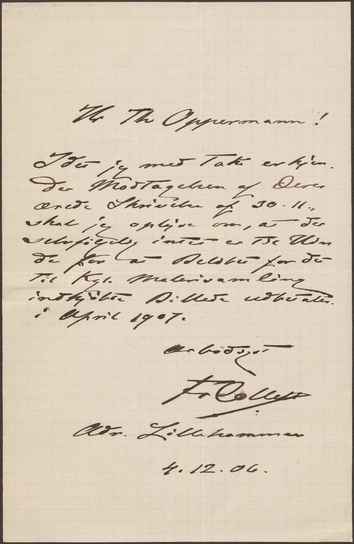 Hr Th Oppermann!
Idet jeg med Tak erkjen-
der Modtagelsen af Deres
ærede Skrivelse af 30-11.,
skal jeg oplyse om, at der
selvfølgelig intet er til Hin-
der for at Beløbet for det
til Kgl. Malerisamling
indkjøbte Billede udbetales
i April 1907.
Ærbødigst
Fr Collett
Adr. Lillehammer
4.12.06.